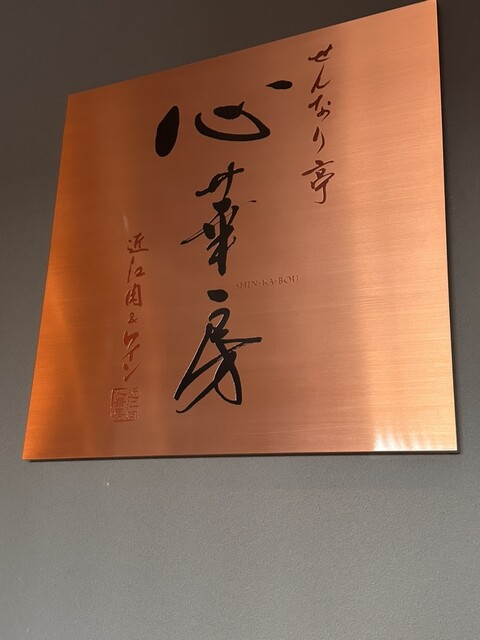 せんなり亭
心華房
SHIN-KA-BOU
近江肉&ワイン